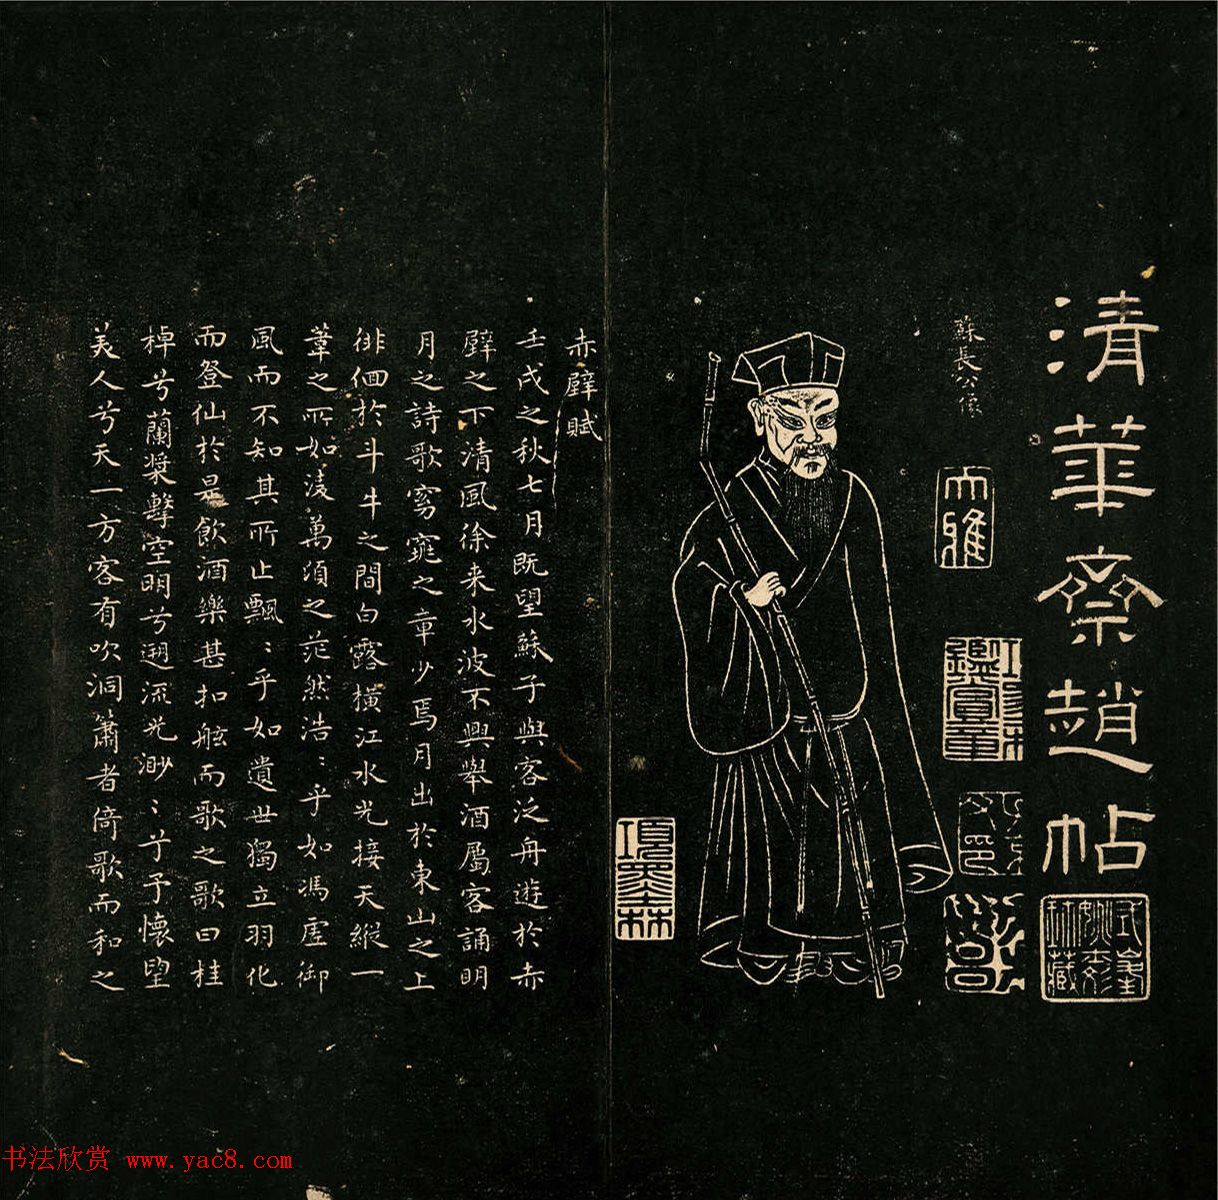 清華齋趙帖
蘇長公像
大雅
鑑賞章
赤壁賦
壬戌之秋七月既望蘇子與客泛舟遊於赤
壁之下清風徐来水波不興舉酒屬客誦明
月之詩歌窈窕之章少焉月出於東山之上
徘徊於斗牛之間白露橫江水光接天縱一
葦之所如淩萬頃之茫然浩:乎如馮虛御
風而不知其所止飄:乎如遺世獨立羽化
而登仙於是飲酒樂甚扣舷而歌之歌曰桂
棹兮蘭槳擊空明兮遡流光渺:兮予懷望
美人兮天一方客有吹洞簫者倚歌而和之
书法欣赏 www.yac8.com